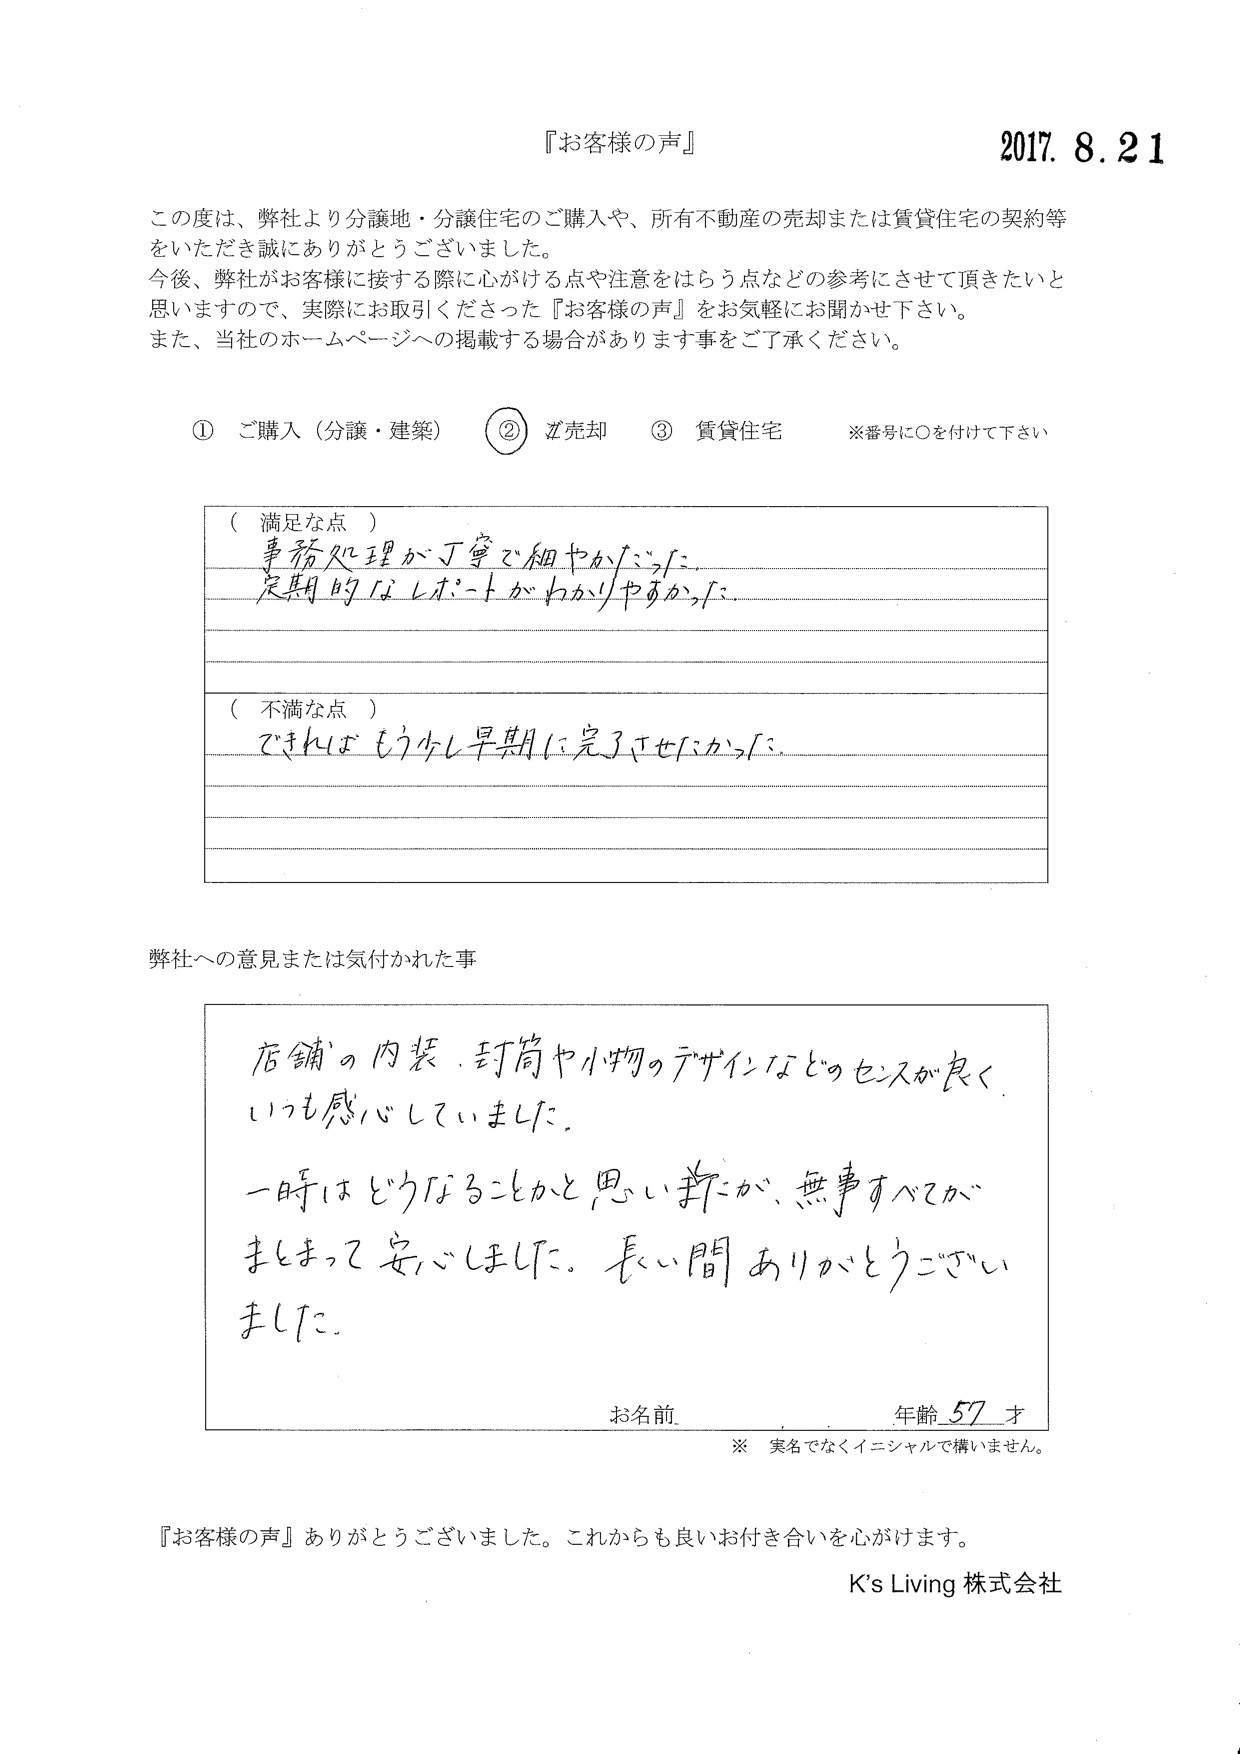 『お客様の声』
2017. 8.21
この度は、弊社より分譲地・分譲住宅のご購入や、所有不動産の売却または賃貸住宅の契約等
をいただき誠にありがとうございました。
今後、弊社がお客様に接する際に心がける点や注意をはらう点などの参考にさせて頂きたいと
思いますので、実際にお取引くださった『お客様の声』をお気軽にお聞かせ下さい。
また、当社のホームページへの掲載する場合があります事をご了承ください。
① ご購入（分譲・建築） ② ご売却 ③ 賃貸住宅 ※番号に○を付けて下さい
（ 満足な点 ）
事務処理が丁寧で細やかだった.
定期的なレポートがわかりやすかった.
（ 不満な点 ）
できればもう少し早期に完了させたかった.
弊社への意見または気付かれた事
店舗の内装、封筒や小物のデザインなどのセンスが良く
いつも感心していました.
一時はどうなることかと思いましたが、無事すべてが
まとまって安心しました. 長い間ありがとうござい
ました.
お名前 年齢 57 才
※ 実名でなくイニシャルで構いません。
『お客様の声』ありがとうございました。これからも良いお付き合いを心がけます。
K's Living 株式会社